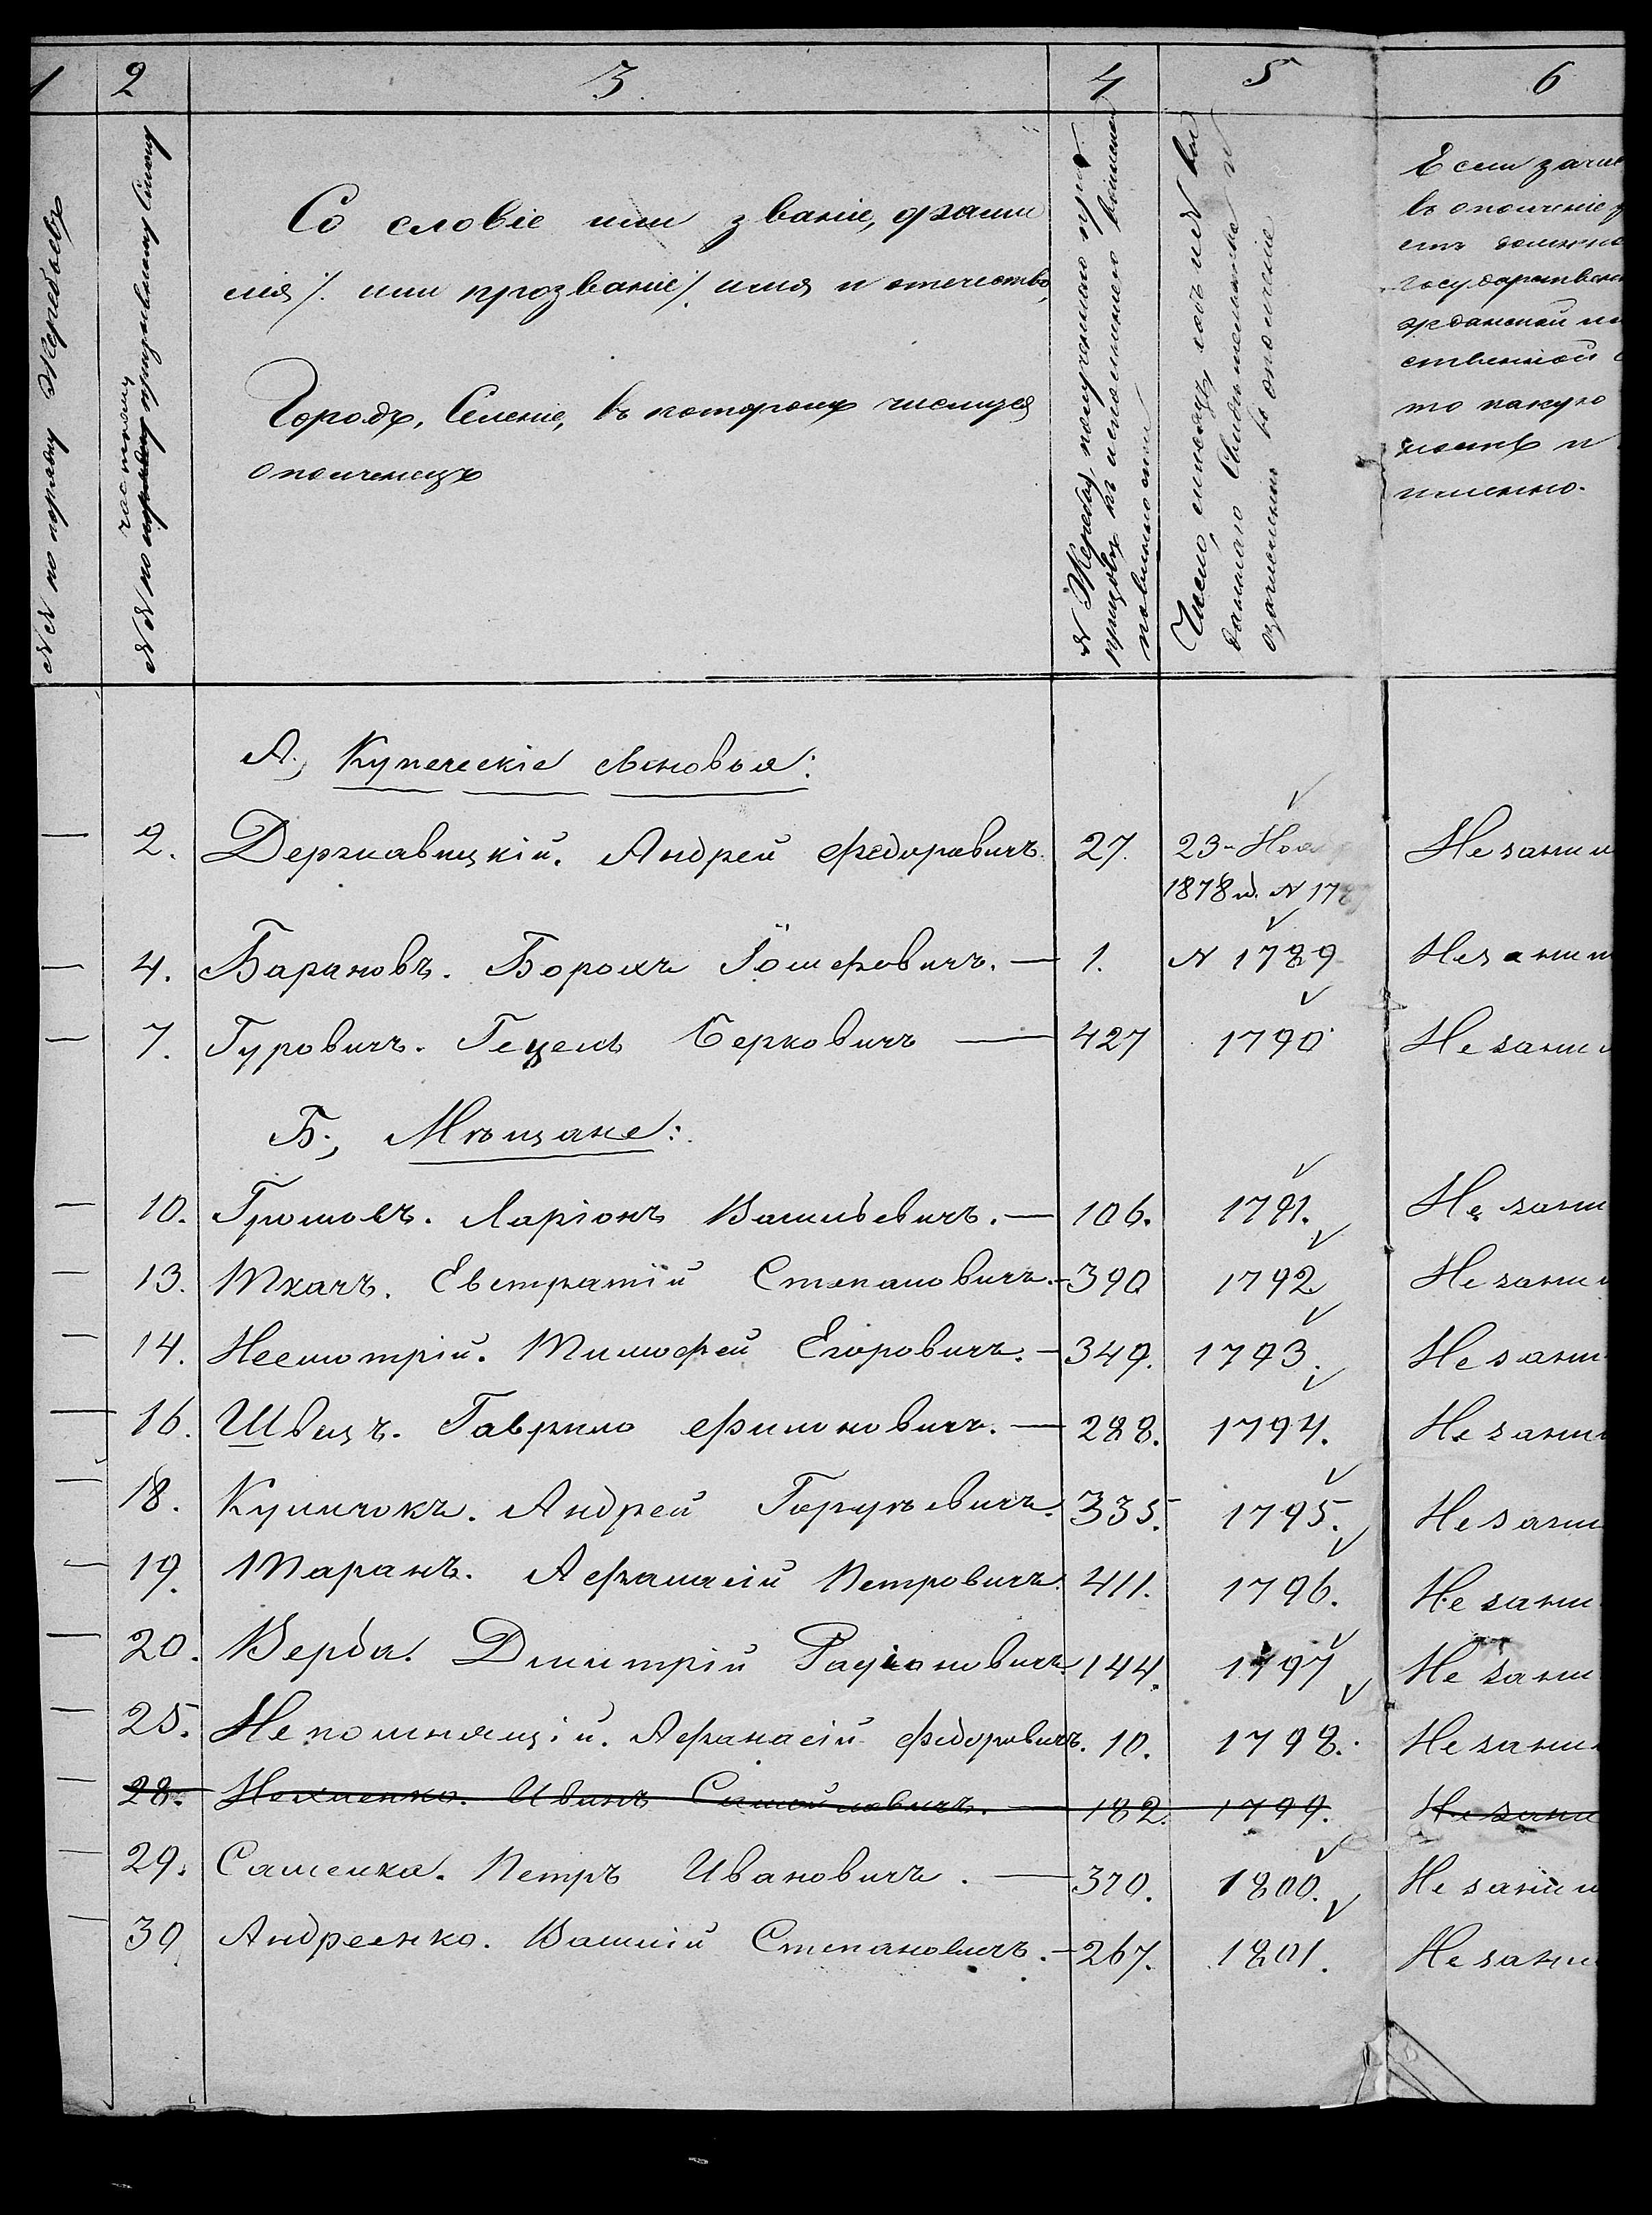 1 2 3. 4 5 6
№№ по порядку Жеребьевъ
№№ по порядку призывному Списку
частному
Со словіе или званіе, фами
лія /. или прозваніе /. имя и отечество,
Городъ, Селеніе, въ которомъ числится
ополченецъ
№ Жеребья полученнаго при
призывѣ къ исполненію воинской
повинности
Число, мѣсяцъ, годъ и №
даннаго Свидѣтельства о
зачисленіи въ ополченіе
Если зачис
въ ополченіе
етъ должно
государствен
жданской ил
ственной
то какую
ность и
именно.
А., Купеческіе сыновья:
— 2. Державицкій. Андрей Федоровичъ. 27. 23-Ноя Не заним
1878 г. № 178
— 4. Барановъ. Борохъ Іошефовичъ. — 1. № 1789 Не заним
— 7. Гуровичъ. Гецель Берковичъ — 427 1790 Не заним
Б., Мѣщане:
— 10. Громовъ. Ларіонъ Васильевичъ. — 106. 1791. Не зани
— 13. Ткачъ. Евстратій Степановичъ. - 390 1792 Не заним
— 14. Несмотрій. Тимофей Егоровичъ. - 349. 1793. Не зани
— 16. Швецъ. Гаврило Филоновичъ. — 288. 1794. Не заним
— 18. Куличокъ. Андрей Гордѣевичъ. 335. 1795. Не зани
— 19. Таранъ. Афанасій Петровичъ. 411. 1796. Не зани
— 20. Верба. Дмитрій Радіоновичъ 144. 1797 Не зани
— 25. Непомнящій. Афанасій Федоровичъ. 10. 1798. Не зани
— 28. Нехаенко. Иванъ Самойловичъ. — 182. 1799. Не зани
— 29. Сашенка. Петръ Ивановичъ. — 370. 1800. Не заним
— 30 Андреенко. Василій Степановичъ. - 267. 1801. Не зани